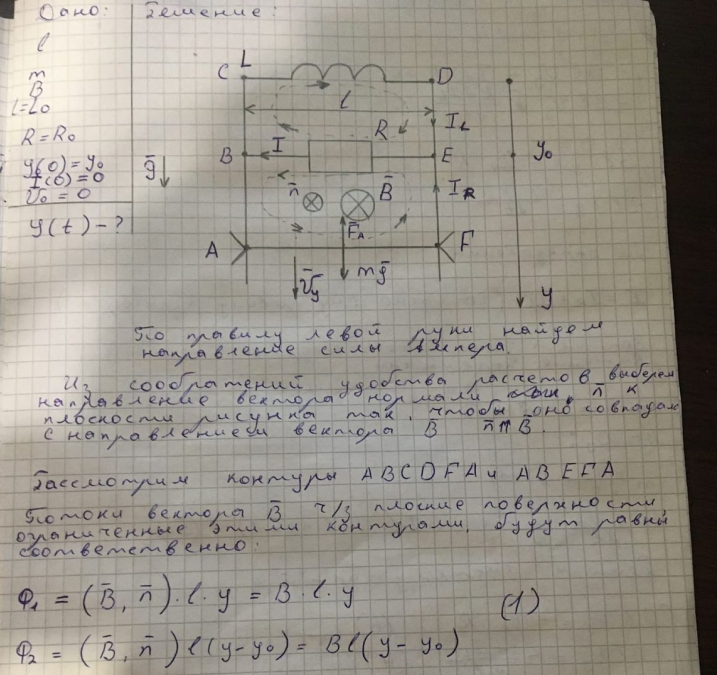 Дано: Решение:
l
m
B
L=L₀
R=R₀
y(0)=y₀
I(0)=0
V₀=0
y(t)-?
g̅
L
C D
l
I_L
R
B I E y₀
n̅ B̅ I_R
F̅_A
A F
mg̅
V̅_y y
По правилу левой руки найдем
направление силы Ампера.
Из соображений удобства расчетов выберем
направление вектора нормали n̅ к
плоскости рисунка так, чтобы оно совпадало
с направлением вектора B n̅⇈B̅.
Рассмотрим контуры ABCDFA и ABEFA
Потоки вектора B̅ ч/з плоские поверхности,
ограниченные этими контурами, будут равны
соответственно:
Ф₁ = (B̅, n̅)·l·y = B·l·y (1)
Ф₂ = (B̅, n̅) l(y-y₀) = Bl(y-y₀)